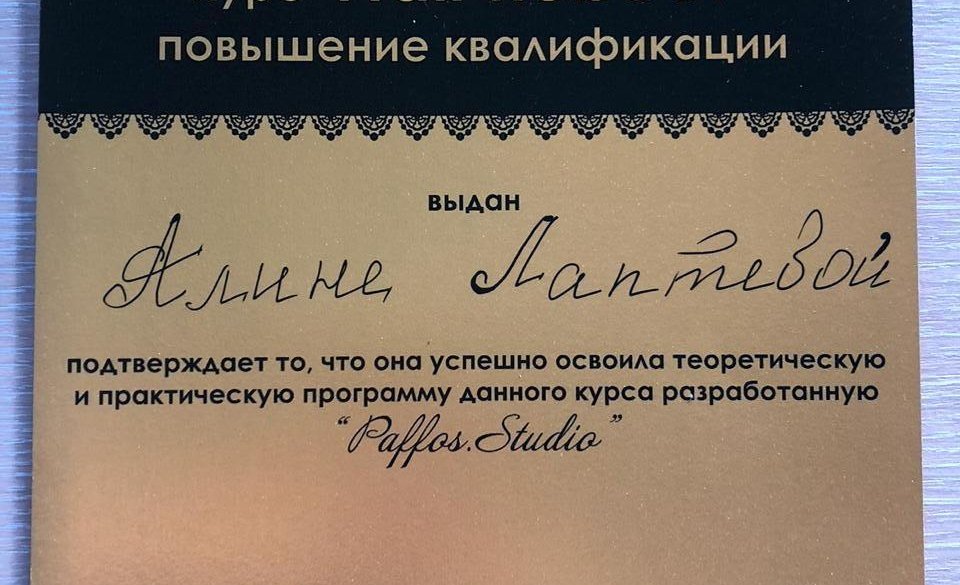 повышение квалификации
выдан
Алине Лаптевой
подтверждает то, что она успешно освоила теоретическую
и практическую программу данного курса разработанную
“Paffos.Studio”